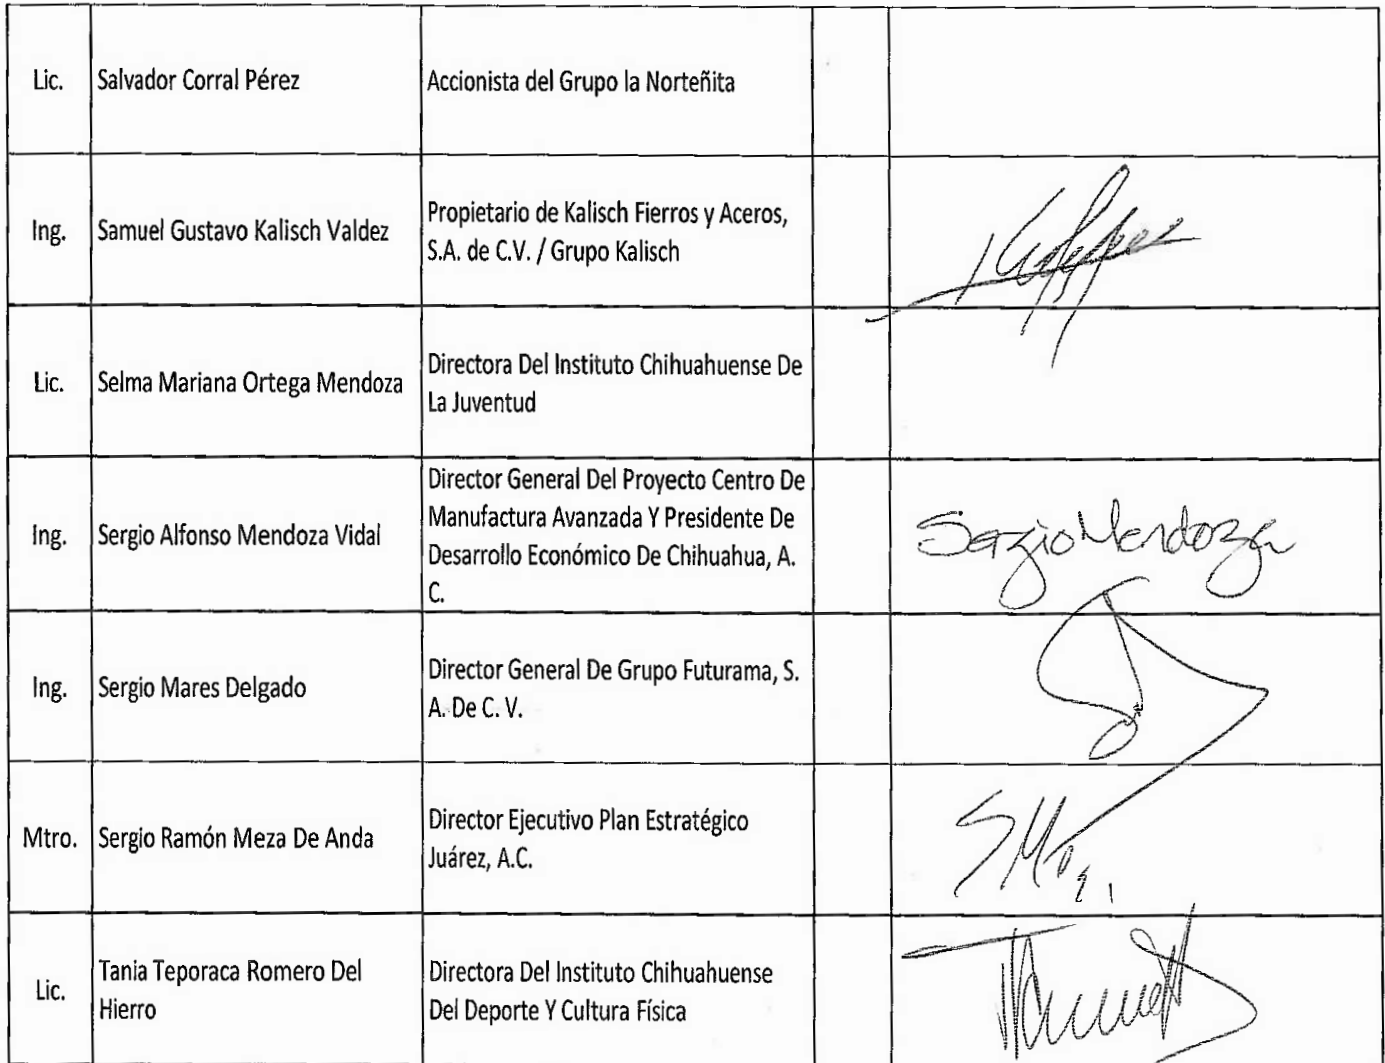 Lic.
Salvador Corral Pérez
Accionista del Grupo la Norteñita
Ing.
Samuel Gustavo Kalisch Valdez
Propietario de Kalisch Fierros y Aceros,
S.A. de C.V. / Grupo Kalisch
Lic.
Selma Mariana Ortega Mendoza
Directora Del Instituto Chihuahuense De
La Juventud
Ing.
Sergio Alfonso Mendoza Vidal
Director General Del Proyecto Centro De
Manufactura Avanzada Y Presidente De
Desarrollo Económico De Chihuahua, A.
C.
Sergio Mendoza
Ing.
Sergio Mares Delgado
Director General De Grupo Futurama, S.
A. De C. V.
Mtro.
Sergio Ramón Meza De Anda
Director Ejecutivo Plan Estratégico
Juárez, A.C.
Lic.
Tania Teporaca Romero Del
Hierro
Directora Del Instituto Chihuahuense
Del Deporte Y Cultura Física